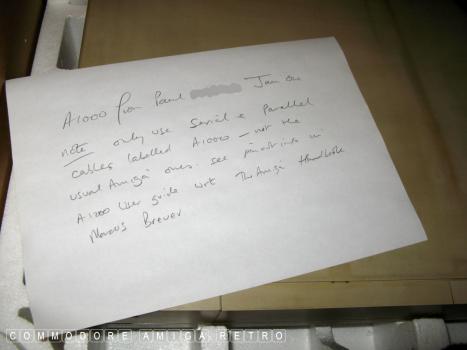 A1000 from Paul Jan 02
note only use Serial & Parallel
cables labelled A1000 - not the
usual Amiga ones. see pinout info in
A1200 User guide wrt The Amiga Handbook
Marcus Brever
COMMODORE AMIGA RETRO